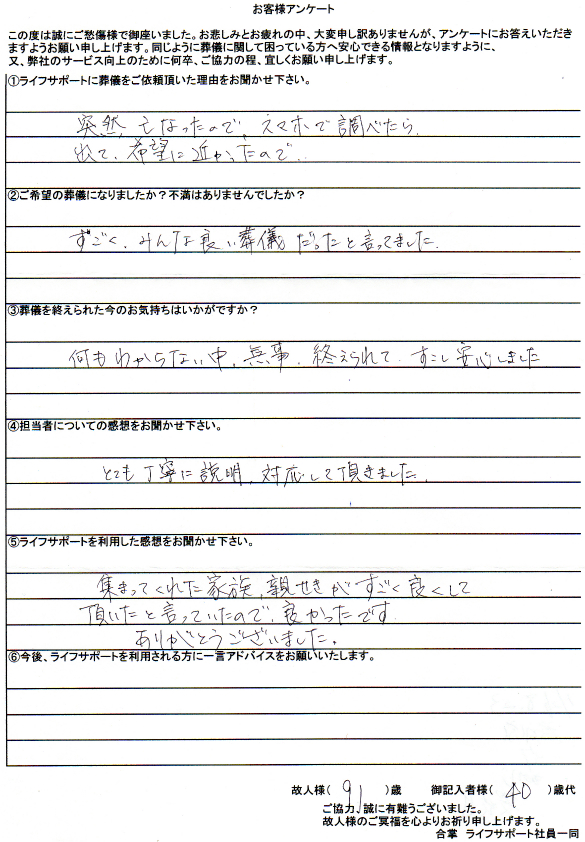 お客様アンケート
この度は誠にご愁傷様で御座いました。お悲しみとお疲れの中、大変申し訳ありませんが、アンケートにお答えいただき
ますようお願い申し上げます。同じように葬儀に関して困っている方へ安心できる情報となりますように、
又、弊社のサービス向上のために何卒、ご協力の程、宜しくお願い申し上げます。
①ライフサポートに葬儀をご依頼頂いた理由をお聞かせ下さい。
突然、亡なったので、スマホで調べたら、
出て、希望に近かったので、
②ご希望の葬儀になりましたか？不満はありませんでしたか？
すごく、みんな良い葬儀だったと言ってました。
③葬儀を終えられた今のお気持ちはいかがですか？
何もわからない中、無事、終えられて、すこし安心しました
④担当者についての感想をお聞かせ下さい。
とても丁寧に説明、対応して頂きました。
⑤ライフサポートを利用した感想をお聞かせ下さい。
集まってくれた家族、親せきがすごく良くして
頂いたと言っていたので、良かったです
ありがとうございました。
⑥今後、ライフサポートを利用される方に一言アドバイスをお願いいたします。
故人様（ 91 ）歳 御記入者様（ 40 ）歳代
ご協力、誠に有難うございました。
故人様のご冥福を心よりお祈り申し上げます。
合掌 ライフサポート社員一同